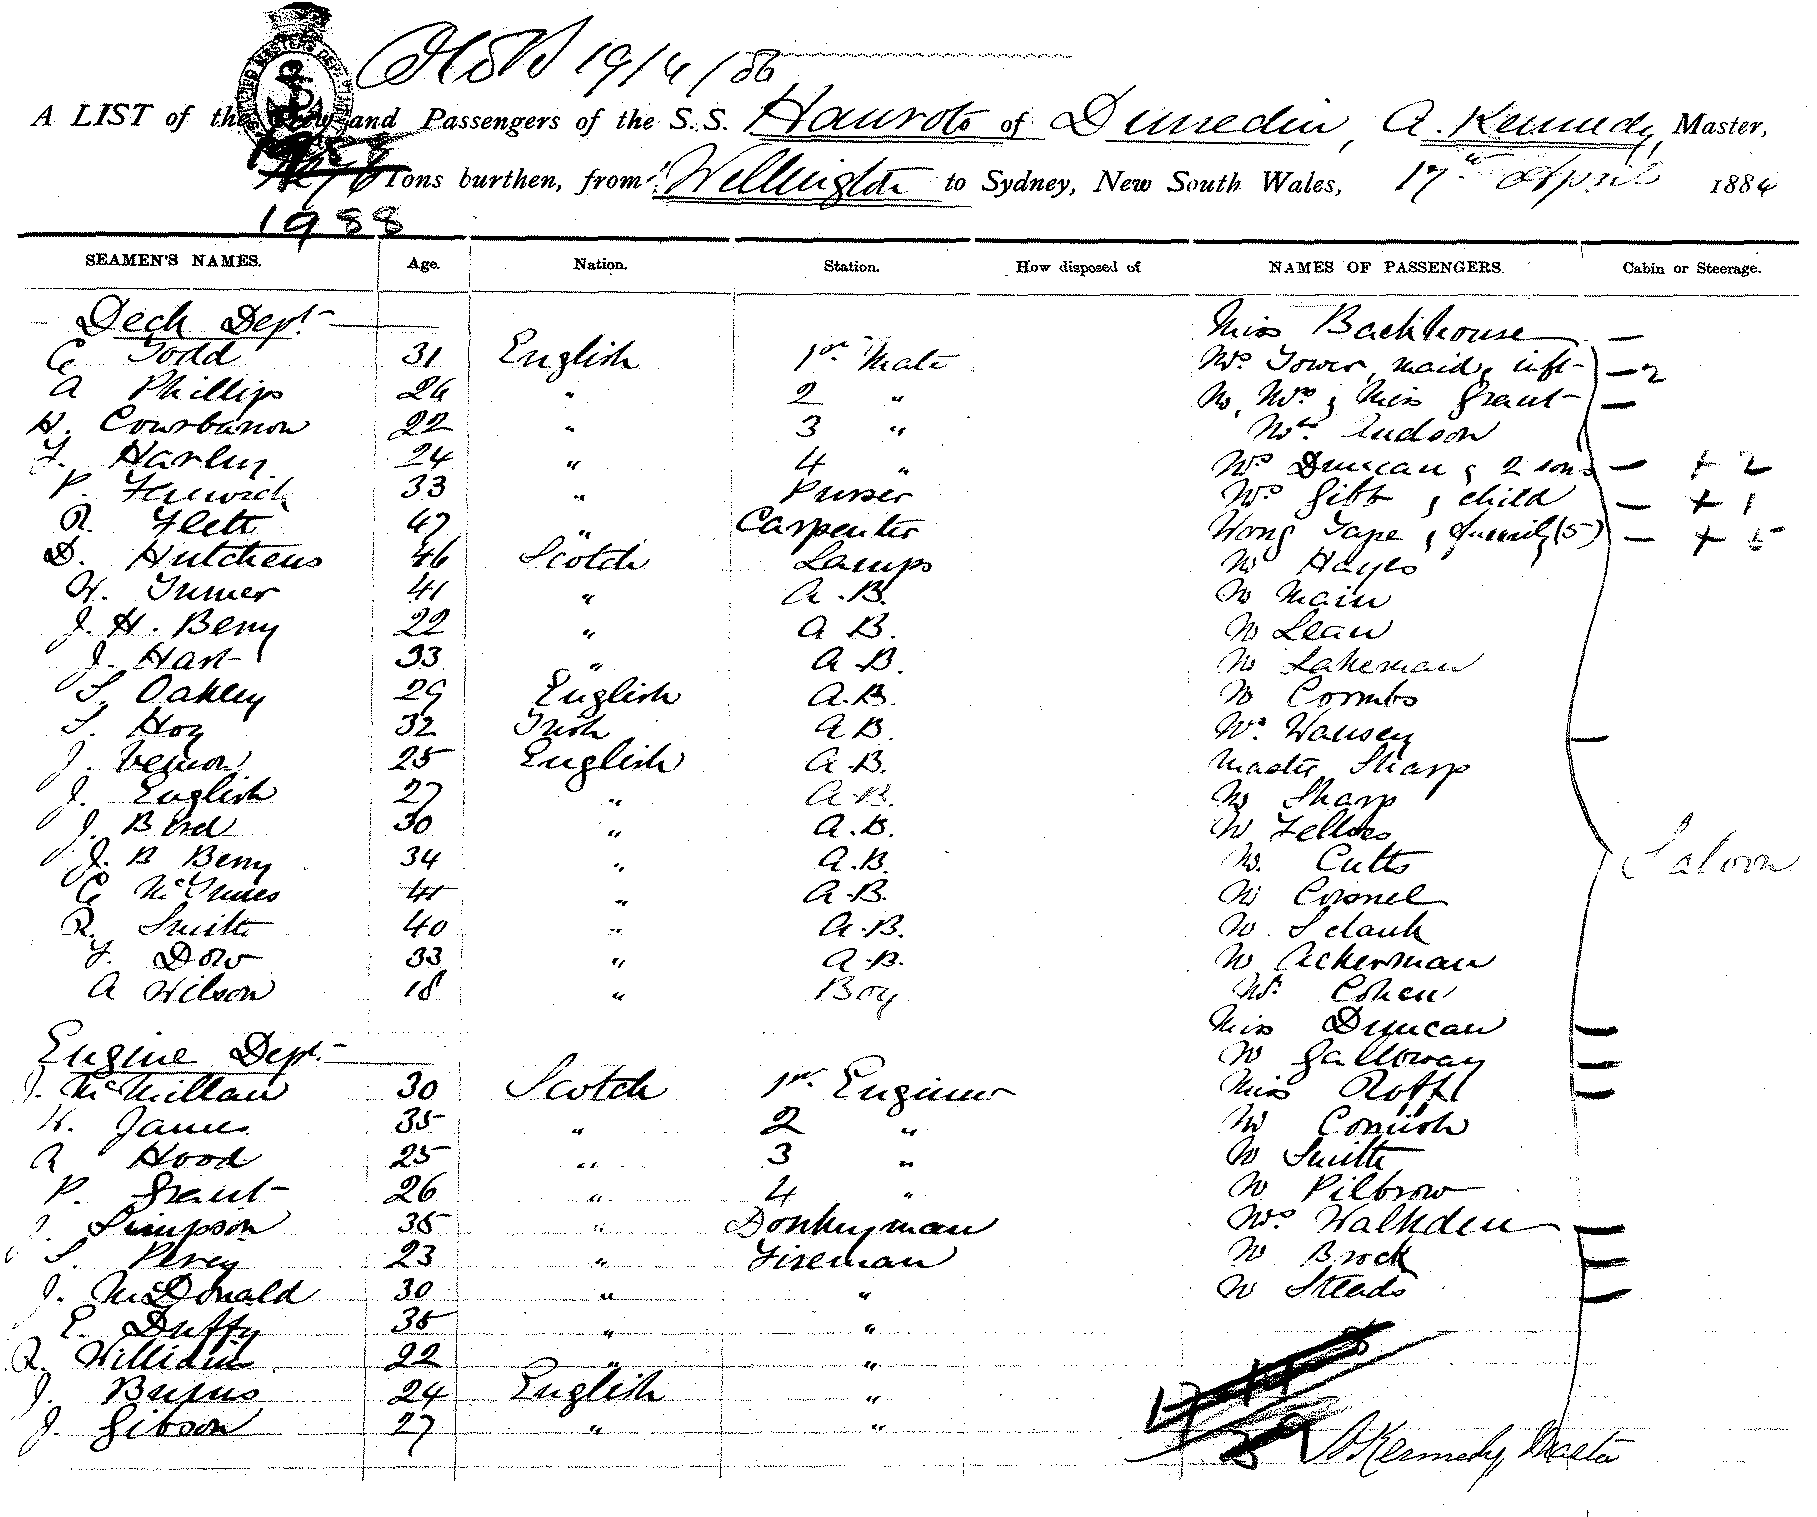 19/4/86
A LIST of the Crew and Passengers of the S.S. Hauroto of Dunedin, A. Kennedy, Master,
Tons burthen, from Wellington to Sydney, New South Wales, 17th April 1886
1988
SEAMEN'S NAMES. Age. Nation. Station. How disposed of NAMES OF PASSENGERS. Cabin or Steerage.
Deck Dept. Miss Backhouse —
C Todd 31 English 1st Mate Mrs Tower, maid, inft — 2
A Phillips 26 " 2 " Mr, Mrs, Miss Grant —
H. Courbarron 22 " 3 " Mr. Judson
F. Harley 24 " 4 " Mrs Duncan, 2 sons — + 2
P. Fenwick 33 " Purser Mrs Gibb, child — + 1
R. Flett 47 " Carpenter Wong Tape, family (5) — + 5
D. Hutchens 46 Scotch Lamps Mr Hayes
H. Turner 41 " A.B. Mr Main
J. H. Berry 22 " A B. Mr Lean
J. Hart 33 " A.B. Mr Lakeman
S. Oakley 29 English A.B. Mr Coombs
S. Hoy 32 Irish A B. Mrs Wansey —
J. Vernon 25 English A.B. Master Sharp
J. English 27 " A.B. Mr Sharp
J. Bird 30 " A.B. Mr Fellows
J. B Berry 34 " A.B. Mr. Cutts Saloon
C McInnes 41 " A.B. Mr Coronel
R. Smith 40 " A.B. Mr. Schank
F. Dow 33 " A.B. Mr Ackerman
A Wilson 18 " Boy Mr. Cohen
Miss Duncan —
Engine Dept. Mr Galloway —
J. McMillan 30 Scotch 1st. Engineer Miss Roff —
H. James 35 " 2 " Mr Cornish
A Hood 25 " 3 " Mr Smith
P. Grant 26 " 4 " Mr Pilbrow
J. Simpson 35 " Donkeyman Mrs Walkden —
S. Percy 23 " Fireman Mr Brock —
J. McDonald 30 " " Mr Steads —
E. Duffy 35 " "
R. William 22 " "
J. Burns 24 English "
J. Gibson 27 " "
A Kennedy, Master